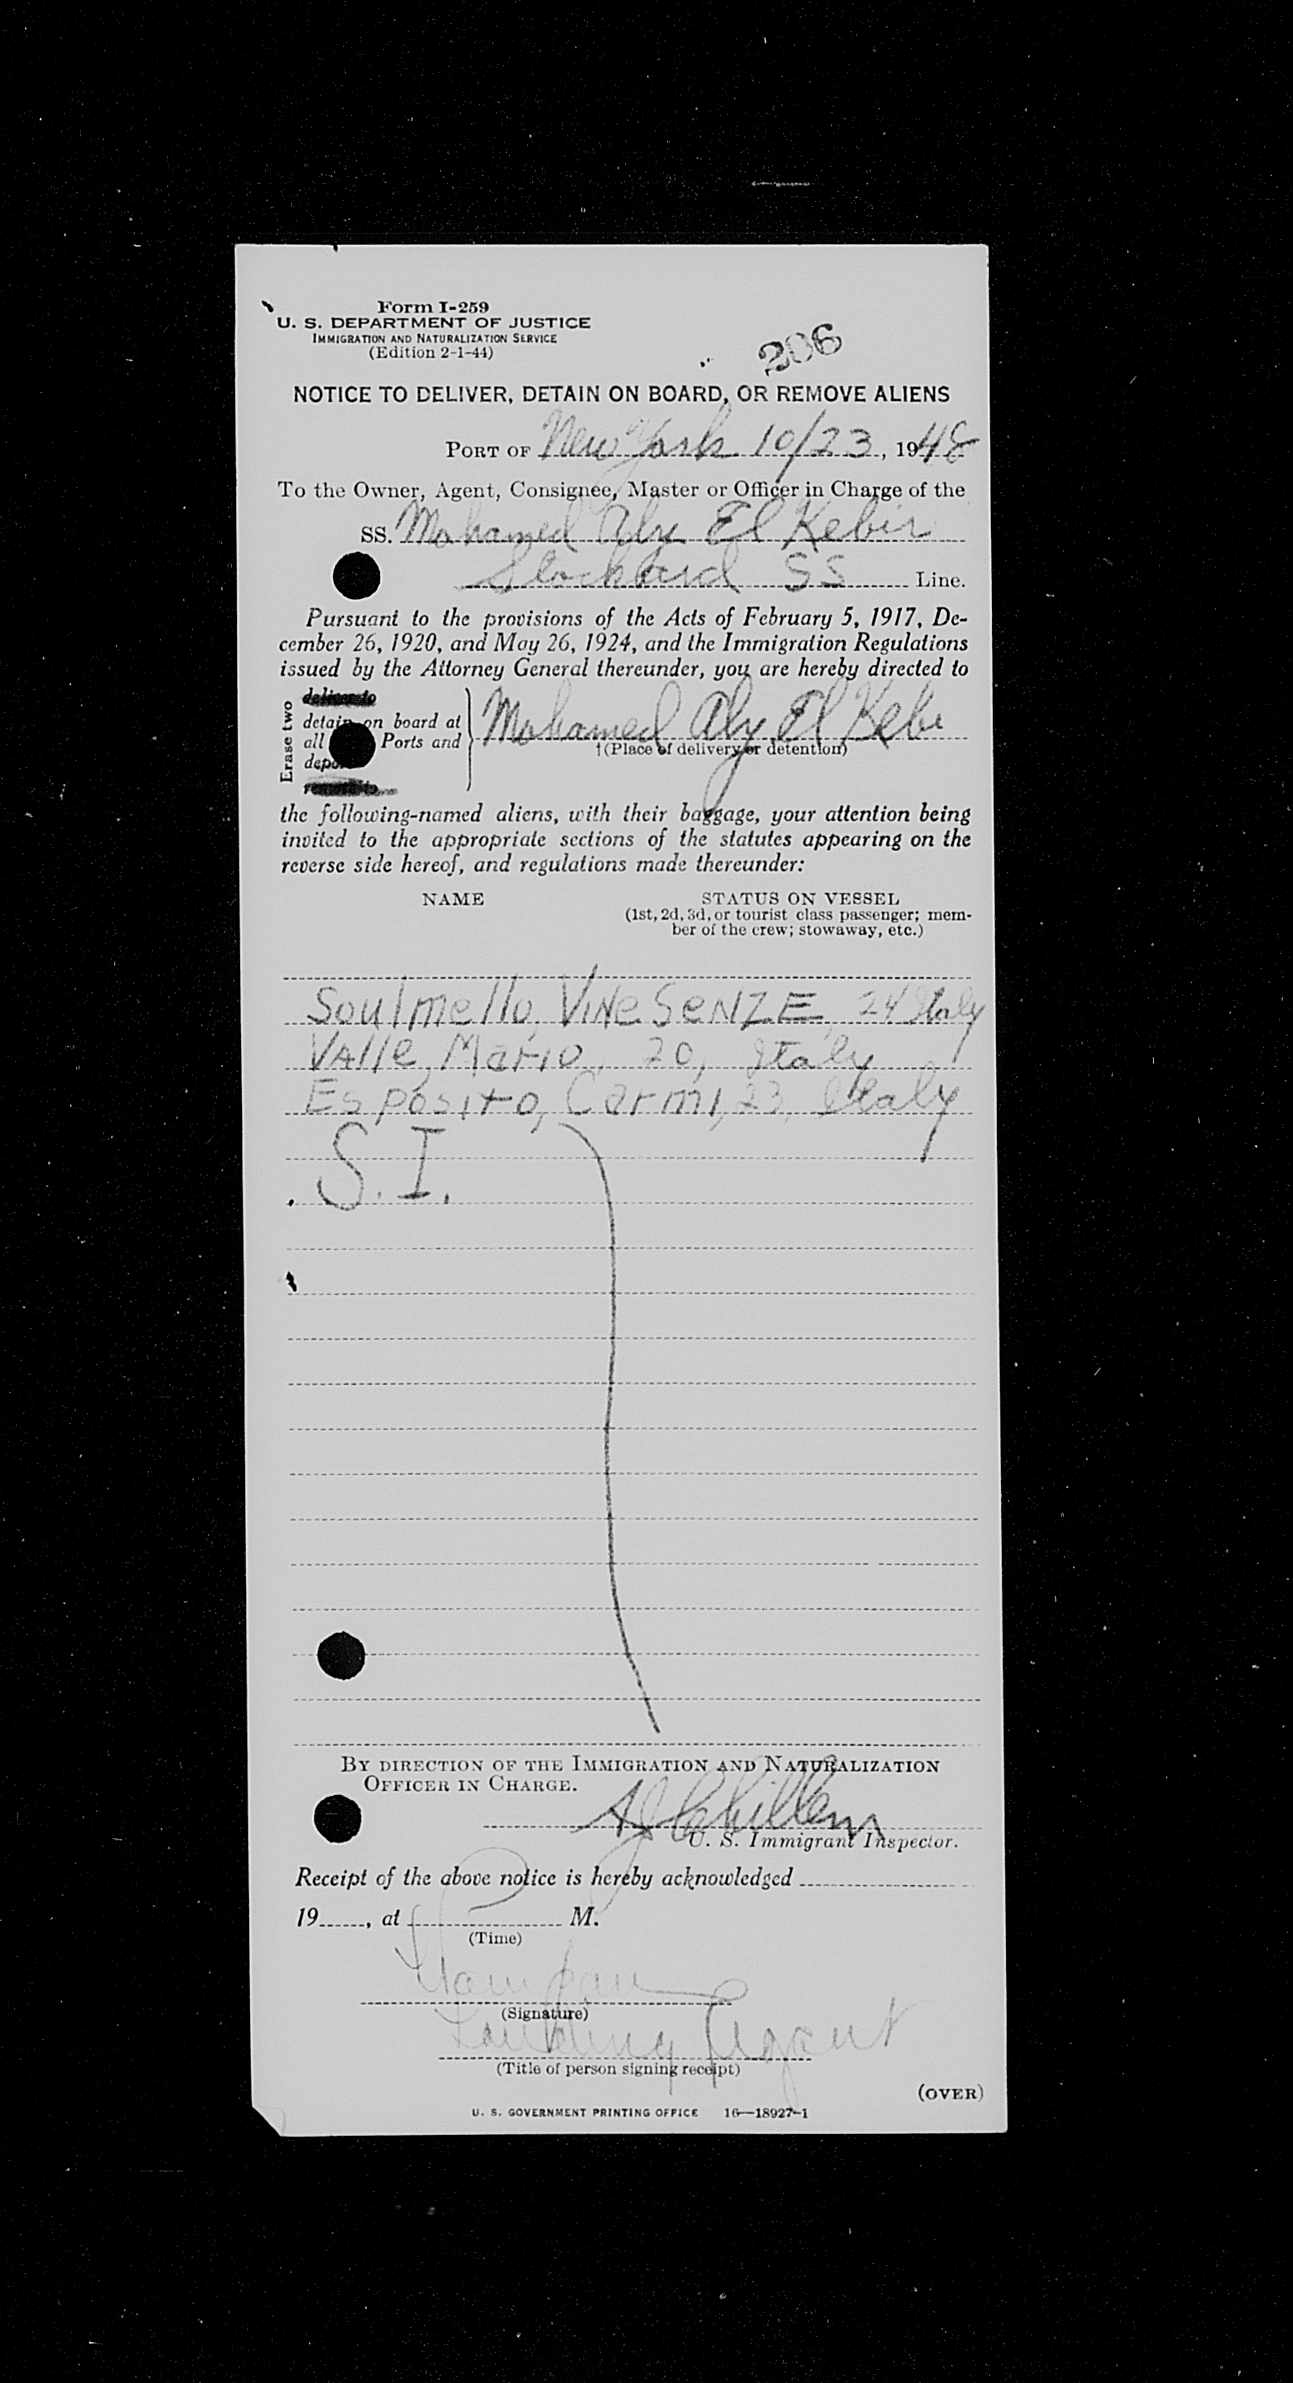 Form I-259
U. S. DEPARTMENT OF JUSTICE
IMMIGRATION AND NATURALIZATION SERVICE
(Edition 2-1-44)
206
NOTICE TO DELIVER, DETAIN ON BOARD, OR REMOVE ALIENS
PORT OF New York 10/23, 1948
To the Owner, Agent, Consignee, Master or Officer in Charge of the
SS. Mohamed Aly El Kebir
SS Line.
Pursuant to the provisions of the Acts of February 5, 1917, De-
cember 26, 1920, and May 26, 1924, and the Immigration Regulations
issued by the Attorney General thereunder, you are hereby directed to
Erase two
deliver to
detain on board at
all Ports and
depo
remove to
Mohamed Aly El Kebi
†(Place of delivery or detention)
the following-named aliens, with their baggage, your attention being
invited to the appropriate sections of the statutes appearing on the
reverse side hereof, and regulations made thereunder:
NAME STATUS ON VESSEL
(1st, 2d, 3d, or tourist class passenger; mem-
ber of the crew; stowaway, etc.)
Soulmello, VINeSeNZE, 24 Italy
VAlle, Mario, 20, Italy
Esposito, Carmi, 23, Italy
S. I.
BY DIRECTION OF THE IMMIGRATION AND NATURALIZATION
OFFICER IN CHARGE.
U. S. Immigrant Inspector.
Receipt of the above notice is hereby acknowledged
19, at M.
(Time)
(Signature)
Agent
(Title of person signing receipt)
(OVER)
U. S. GOVERNMENT PRINTING OFFICE 16—18927-1